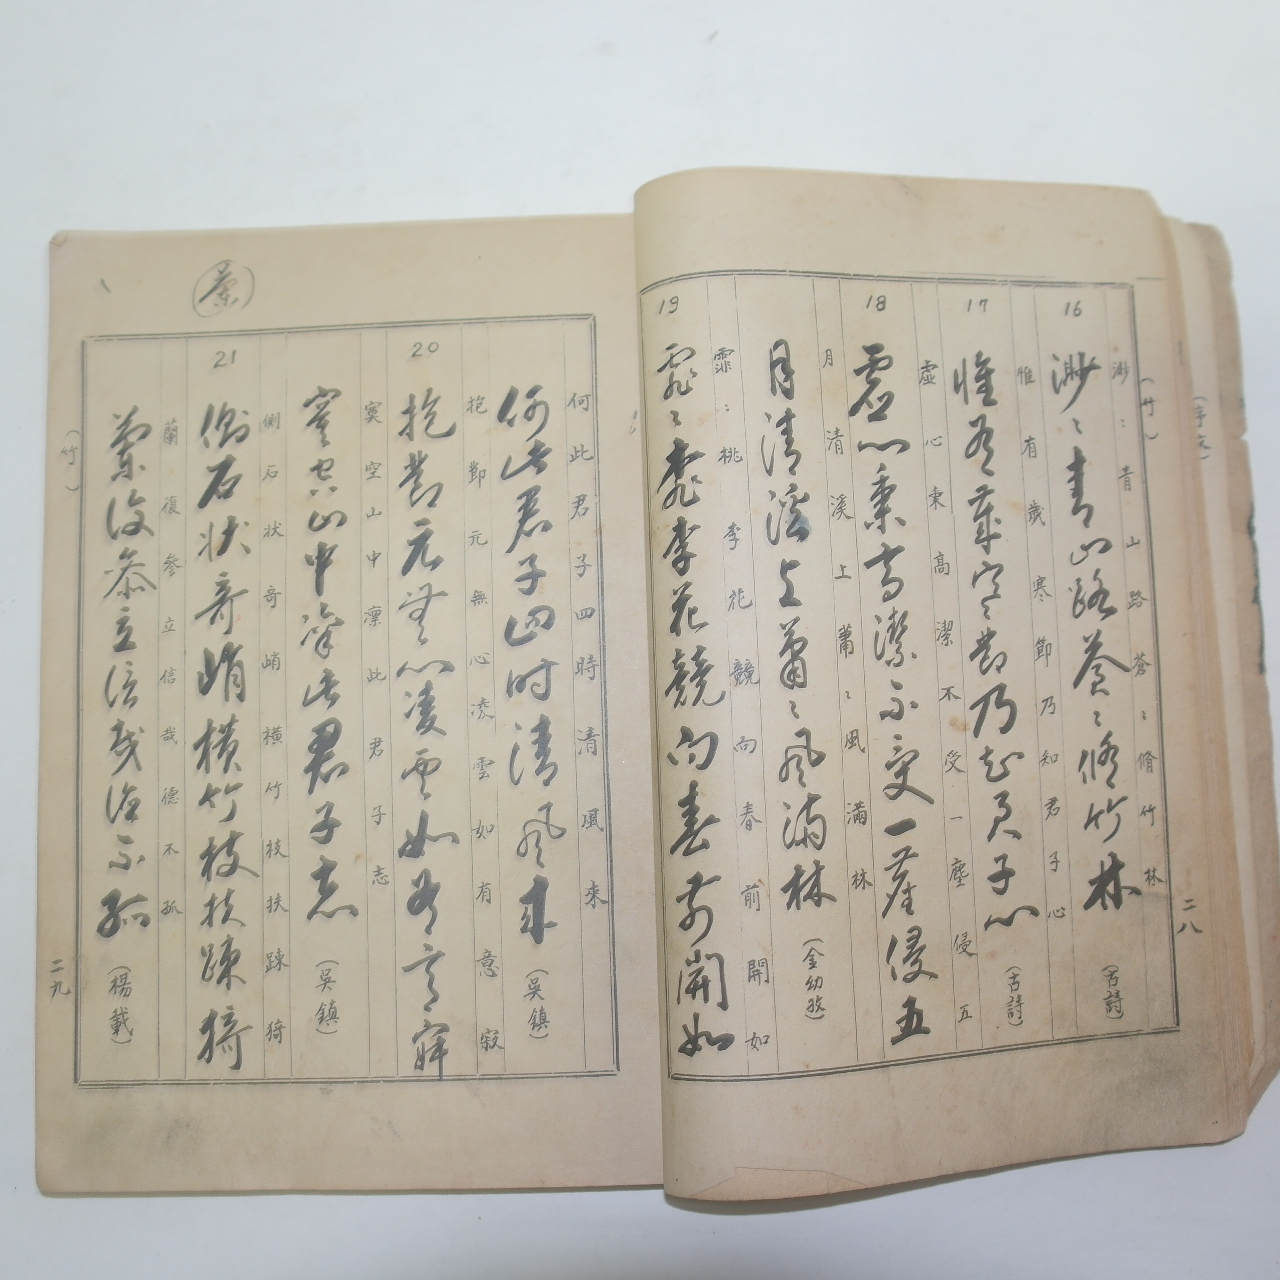 (竹)
16
渺〻青山路蒼〻脩竹林
渺〻青山路蒼〻脩竹林
(古詩)
17
惟有歲寒節乃知君子心
惟有歲寒節乃知君子心
(古詩)
18
虛心秉高潔不受一塵侵五
虛心秉高潔不受一塵侵五
月清溪上蕭〻風滿林
月清溪上蕭〻風滿林
(金幼孜)
19
霏〻桃李花競向春前開如
霏〻桃李花競向春前開如
二八
何此君子四時清風來
何此君子四時清風來
(吳鎮)
20
抱節元無心凌雲如有意寂
抱節元無心凌雲如有意寂
寞空山中凛此君子志
寞空山中凛此君子志
(吳鎮)
21
側石狀奇峭橫竹枝扶踈猗
側石狀奇峭橫竹枝扶踈猗
蘭復參立信哉德不孤
蘭復參立信哉德不孤
(楊載)
蘭
(竹)
二九